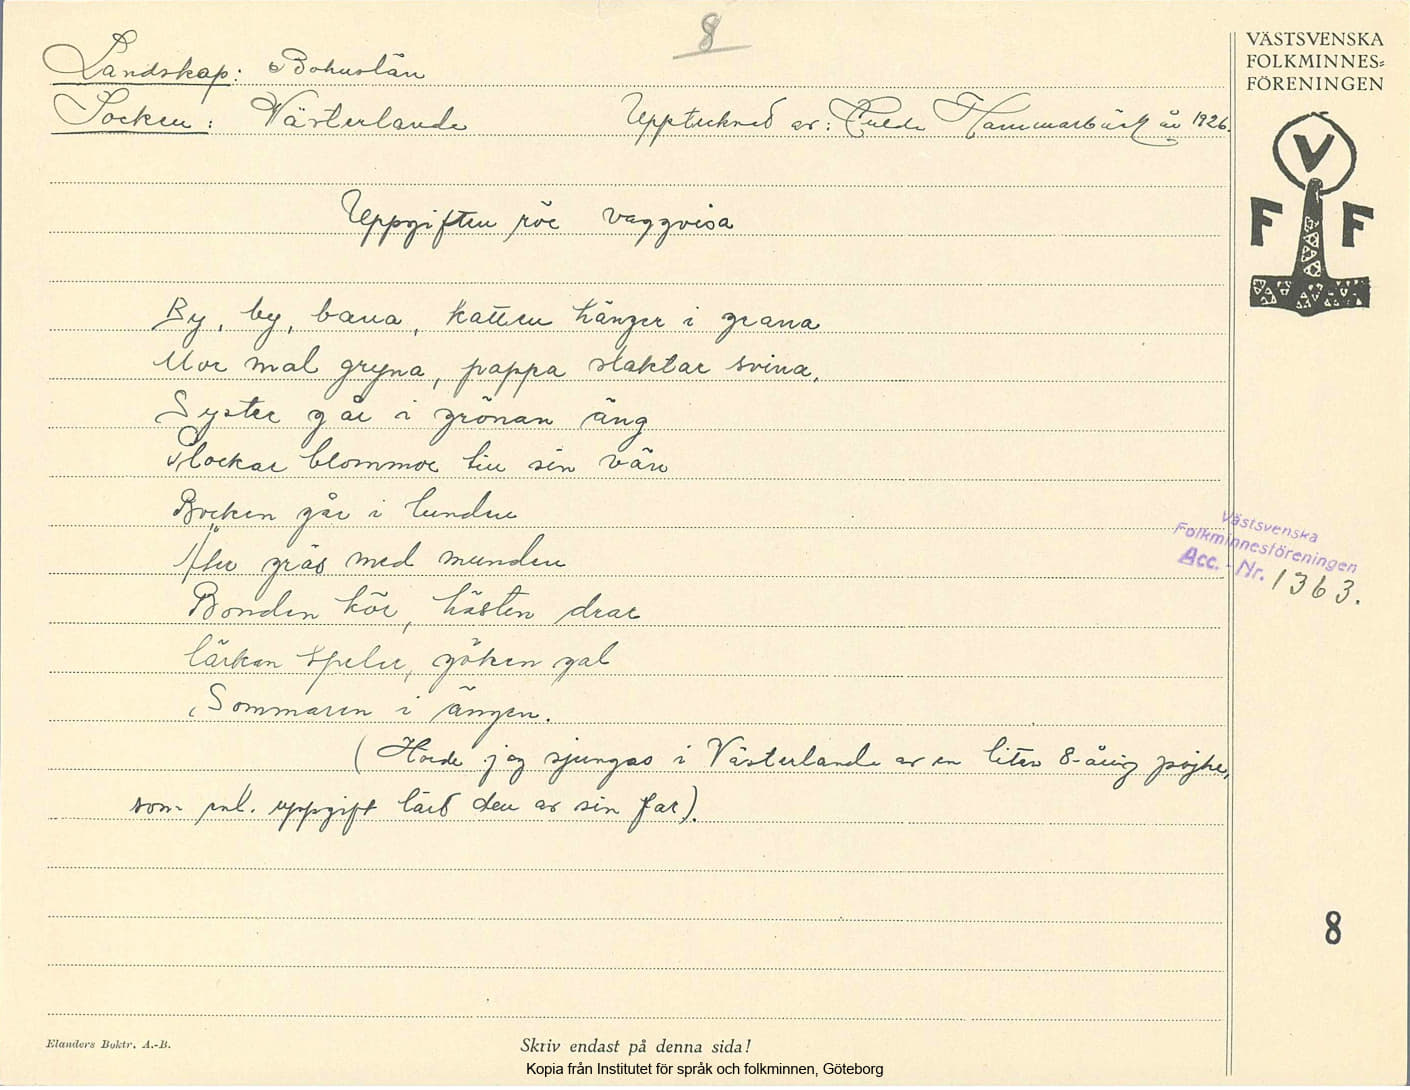 8
Landskap: Bohuslän
Socken: Västerlanda
Upptecknad av: Hulda Hammarbäck år 1926.
VÄSTSVENSKA
FOLKMINNES=
FÖRENINGEN
V
F F
Uppgiften rör vaggvisa
By, by, bana, katten hänger i grana
Mor mal gryna, pappa slaktar svina,
Syster går i grönan äng
Plockar blommor till sin vän
Bocken går i lunden
Äter gräs med munden
Bonden kör, hästen drar
lärkan spelar, göken gal
Sommaren i ängen.
(Hörde jag sjungas i Västerlanda av en liten 8-årig pojke,
som enl. uppgift lärt den av sin far).
Västsvenska
Folkminnesföreningen
Acc. - Nr. 1363.
8
Elanders Boktr. A.-B.
Skriv endast på denna sida!
Kopia från Institutet för språk och folkminnen, Göteborg